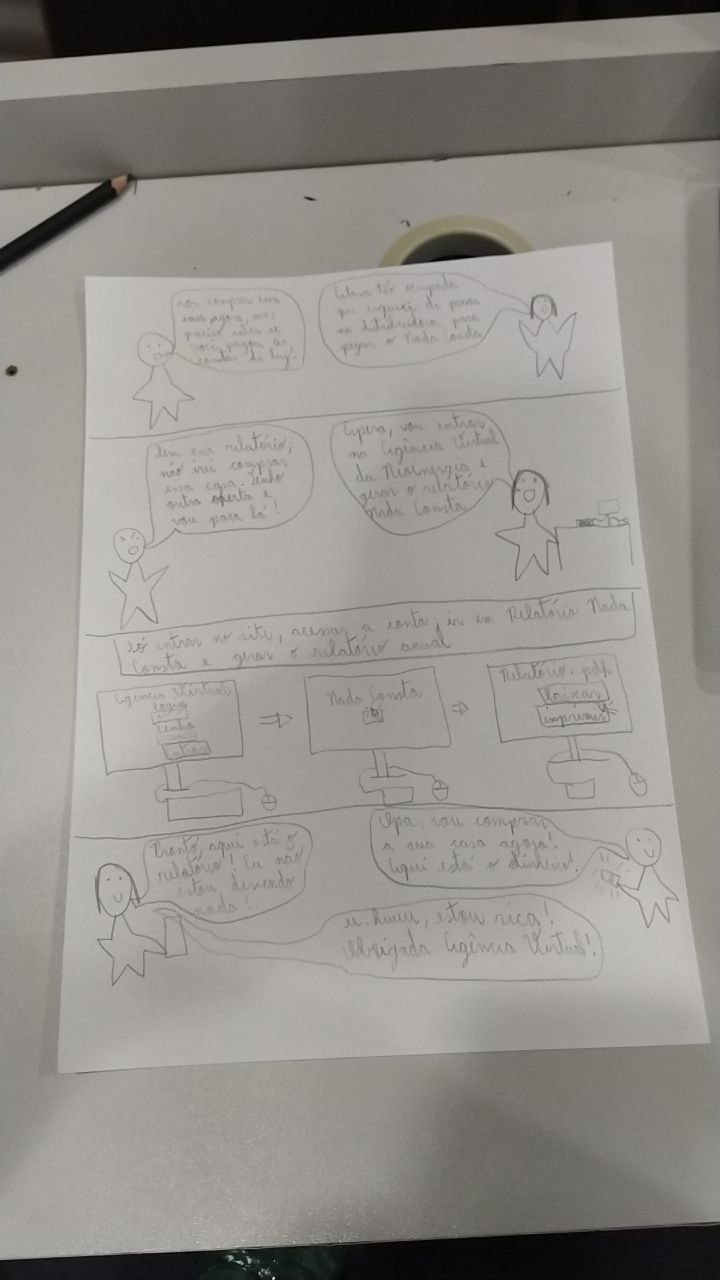 vou comprar em
casa agora, mas
preciso saber se
você pagou as
contas de luz!
Estava tão ocupada
que esqueci de passar
na distribuidora para
pegar o Nada Consta
Sem esse relatório,
não irei comprar
essa casa. Tenho
outra oferta e
vou para lá!
Espera, vou entrar
na Agência Virtual
da Neoenergia e
gerar o relatório
Nada Consta
Só entrar no site, acessar a conta, ir em Relatório Nada
Consta e gerar o relatório anual
Agência Virtual
Login
Senha
Entrar
Nada Consta
Relatório.pdf
baixar
imprimir
Pronto, aqui está o
relatório! Eu não
estou devendo
nada!
Opa, vou comprar
a sua casa agora!
Aqui está o dinheiro!
u-huuu, estou rica!
Obrigada Agência Virtual!